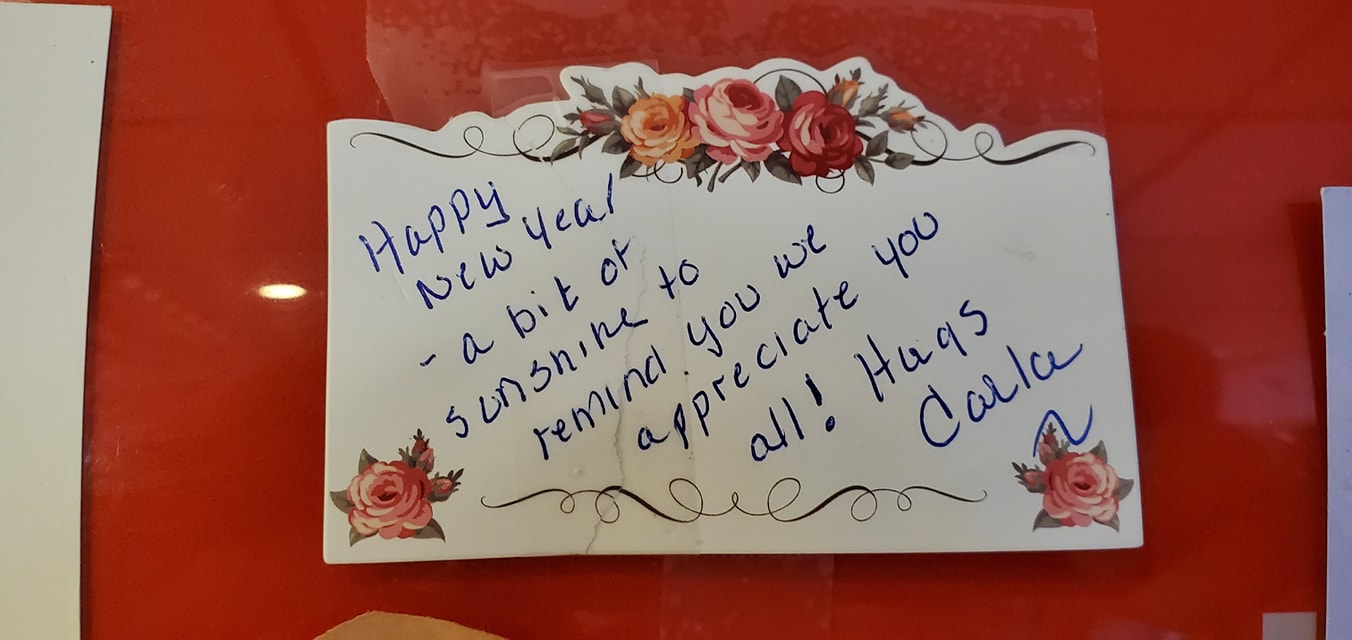 Happy
New Year
- a bit of
sunshine to
remind you we
appreciate you
all! Hugs
Carla